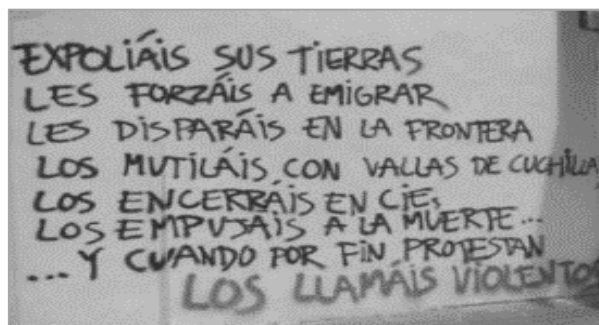 EXPOLIÁIS SUS TIERRAS
LES FORZÁIS A EMIGRAR
LES DISPARÁIS EN LA FRONTERA
LOS MUTILÁIS CON VALLAS DE CUCHILLA
LOS ENCERRÁIS EN CIE,
LOS EMPUJAIS A LA MUERTE...
... Y CUANDO POR FIN PROTESTAN
LOS LLAMÁIS VIOLENTOS